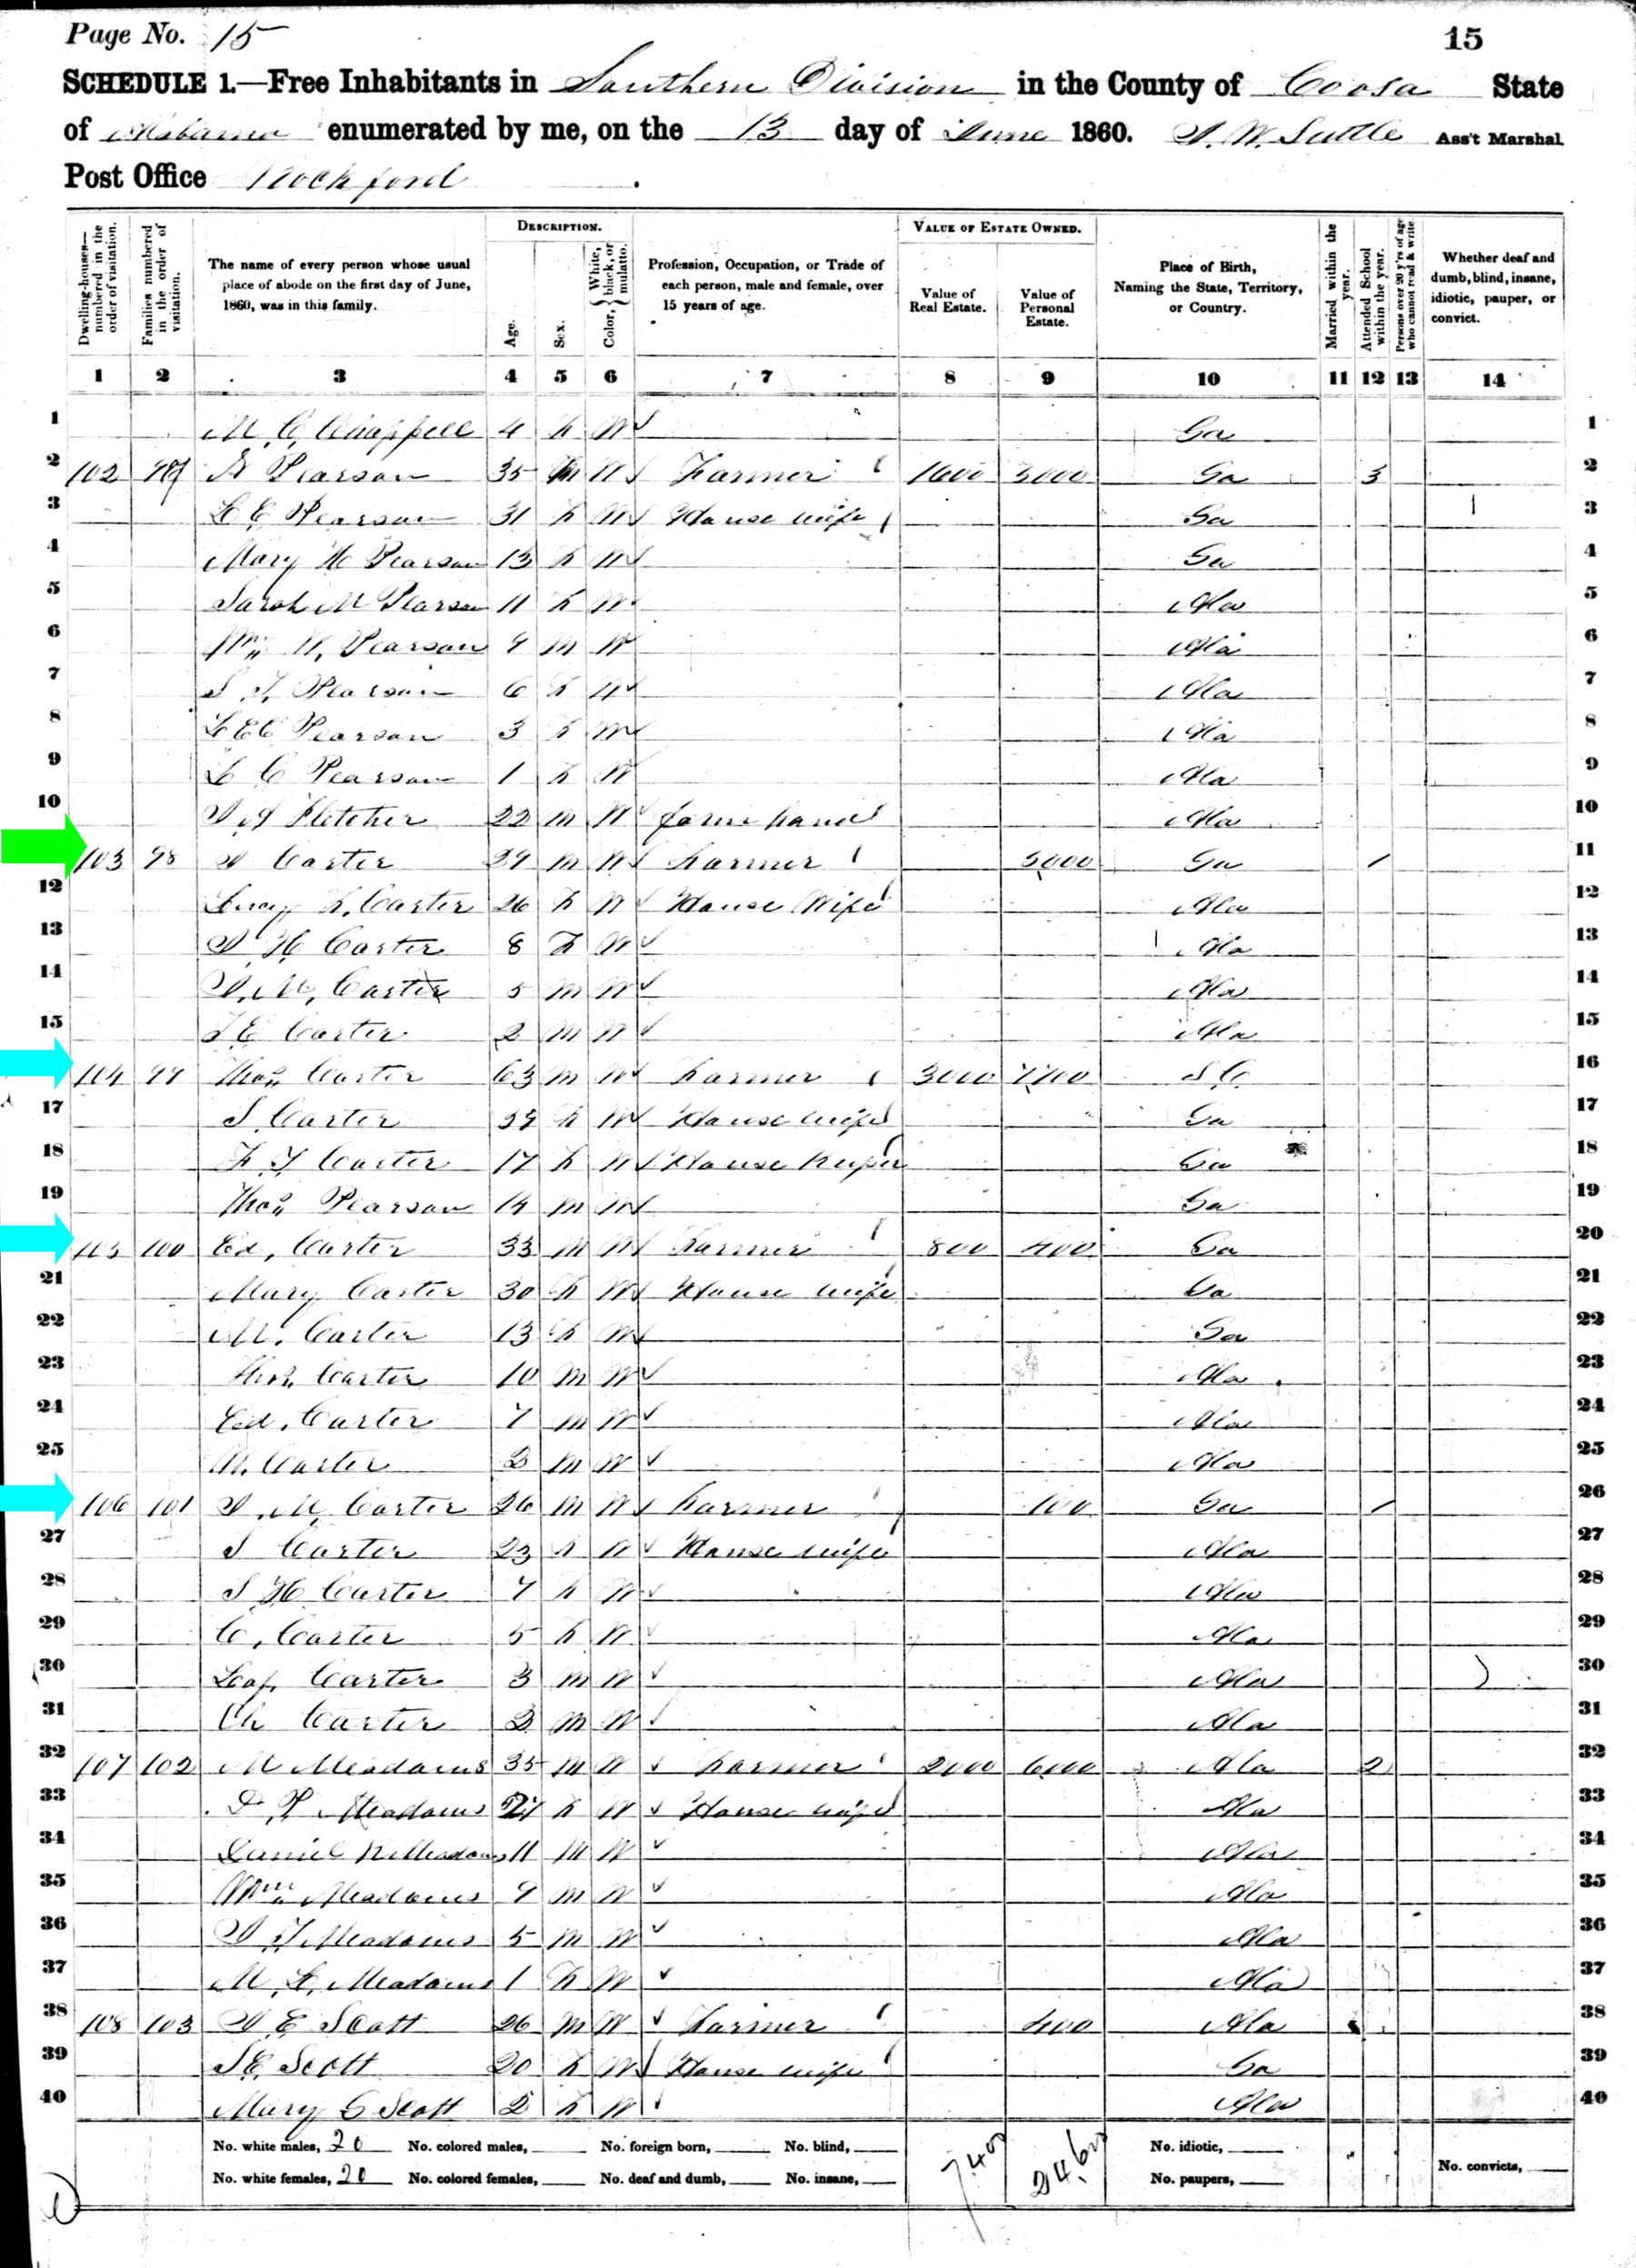 Page No. 15
15
SCHEDULE 1.—Free Inhabitants in Southern Division in the County of Coosa State
of Alabama enumerated by me, on the 13 day of June 1860. A. W. Suttle Ass't Marshal
Post Office Rockford
Dwelling-houses—numbered in the order of visitation.
Families numbered in the order of visitation.
The name of every person whose usual place of abode on the first day of June, 1860, was in this family.
DESCRIPTION.
Age.
Sex.
Color, { White, black, or mulatto.
Profession, Occupation, or Trade of each person, male and female, over 15 years of age.
VALUE OF ESTATE OWNED.
Value of Real Estate.
Value of Personal Estate.
Place of Birth, Naming the State, Territory, or Country.
Married within the year.
Attended School within the year.
Persons over 20 y'rs of age who cannot read & write.
Whether deaf and dumb, blind, insane, idiotic, pauper, or convict.
1 2 3 4 5 6 7 8 9 10 11 12 13 14
1 M. C. Chappell 4 f W Ga 1
2 102 97 Pearson 35 m W Farmer 1600 3000 Ga 3 2
3 Pearson 31 f W House wife Ga 3
4 Mary H Pearson 13 f W Ga 4
5 Sarah M Pearson 11 f W Ala 5
6 Wm W. Pearson 9 m W Ala 6
7 S J. Pearson 6 f W Ala 7
8 Pearson 3 f W Ala 8
9 L C Pearson 1 f W Ala 9
10 Fletcher 22 m W farm hand Ala 10
11 103 98 Carter 29 m W Farmer 5000 Ga / 11
12 Lucy F. Carter 26 f W House Wife Ala 12
13 H Carter 8 f W Ala 13
14 M. Carter 5 m W Ala 14
15 J E Carter 2 m W Ala 15
16 104 99 Thos Carter 63 m W Farmer 3000 7700 S C. 16
17 S. Carter 59 f W House wife Ga 17
18 F J Carter 17 f W House Keeper Ga 18
19 Thos Pearson 14 m W Ga 19
20 105 100 Ed, Carter 33 m W Farmer 800 400 Ga 20
21 Mary Carter 30 f W House wife Ga 21
22 M. Carter 13 f W Ga 22
23 Thos. Carter 10 m W Ala 23
24 Ed. Carter 7 m W Ala 24
25 Carter 2 m W Ala 25
26 106 101 M Carter 26 m W Farmer 100 Ga / 26
27 S Carter 23 f W House wife Ala 27
28 S H Carter 7 f W Ala 28
29 C. Carter 5 f W Ala 29
30 Carter 3 m W Ala 30
31 Ch Carter 2 m W Ala 31
32 107 102 M Meadams 35 m W Farmer 2000 6000 Ala 2 32
33 Meadams f W House wife Ala 33
34 Daniel Meadams 11 m W Ala 34
35 Wm Meadams 9 m W Ala 35
36 Meadams 5 m W Ala 36
37 M. Meadams 1 f W Ala 37
38 108 103 E Scott 26 m W Farmer 400 Ala 38
39 S E Scott 20 f W House wife Ga 39
40 Mary Scott 2 f W Ala 40
No. white males, 20 No. colored males, No. foreign born, No. blind, No. idiotic,
No. white females, 20 No. colored females, No. deaf and dumb, No. insane, No. paupers, No. convicts,
7400